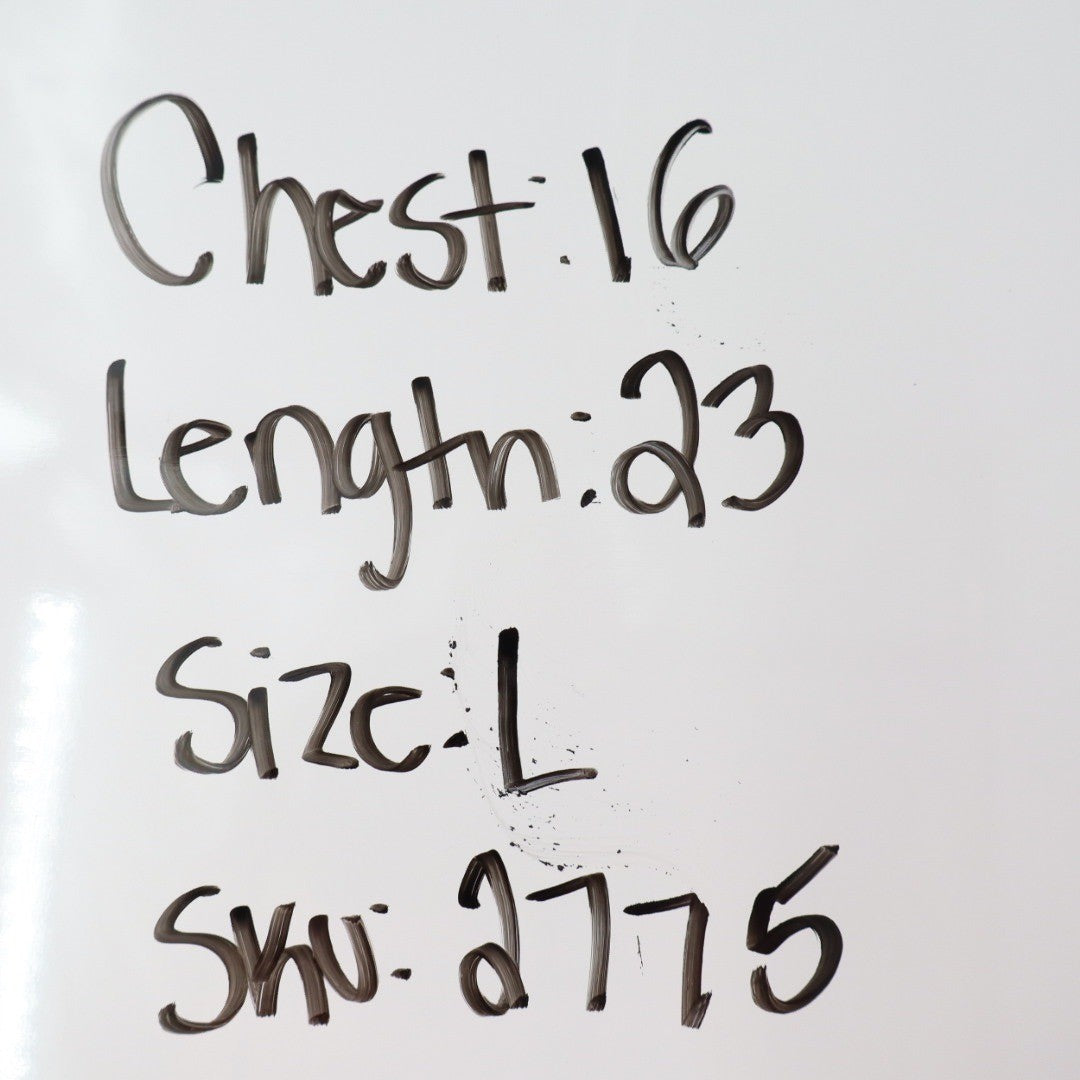 Chest: 16
Length: 23
Size: L
Sku: 2775